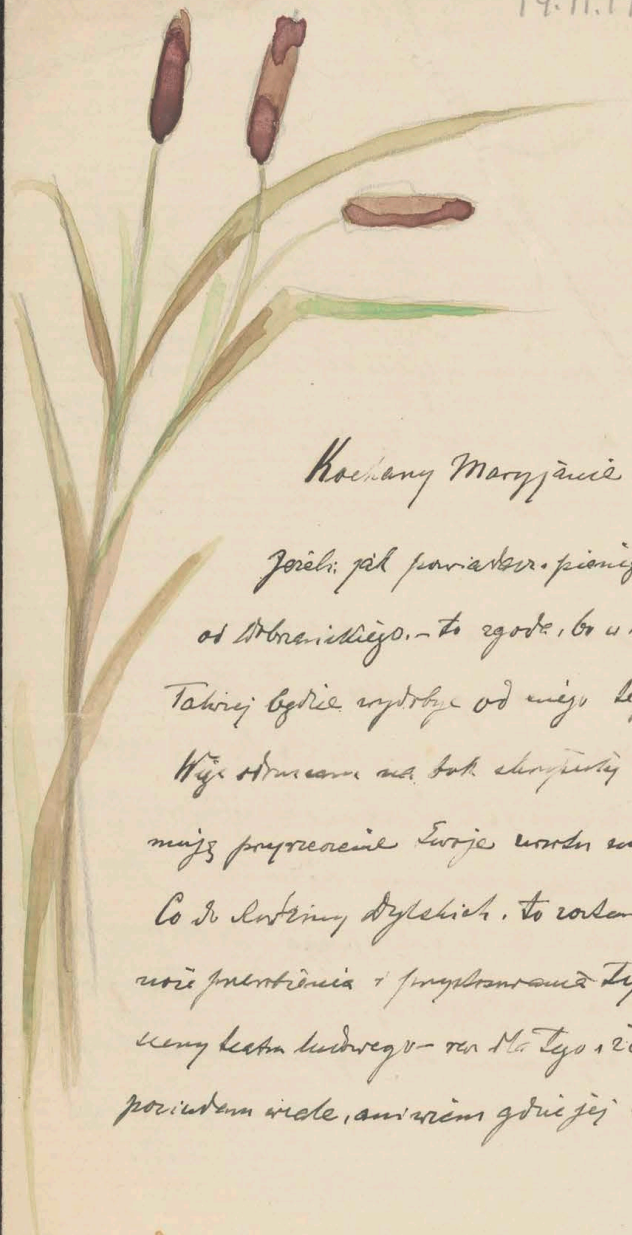 19.11.1
Kochany Maryjanie
Jeżeli jak powiadasz pienię
od Dobrzenickiego. – to zgoda, bo w
Takiej będzie wydobyć od niego te
Więc odrzucam na bok skrupuły
mają przyrzeczenie Twoje
Co do Rodziny Dylskich, to
może i przystosowania Ty
sceny teatru ludowego – raz dla tego, że
posiadam wiele, ani wiem gdzie jej